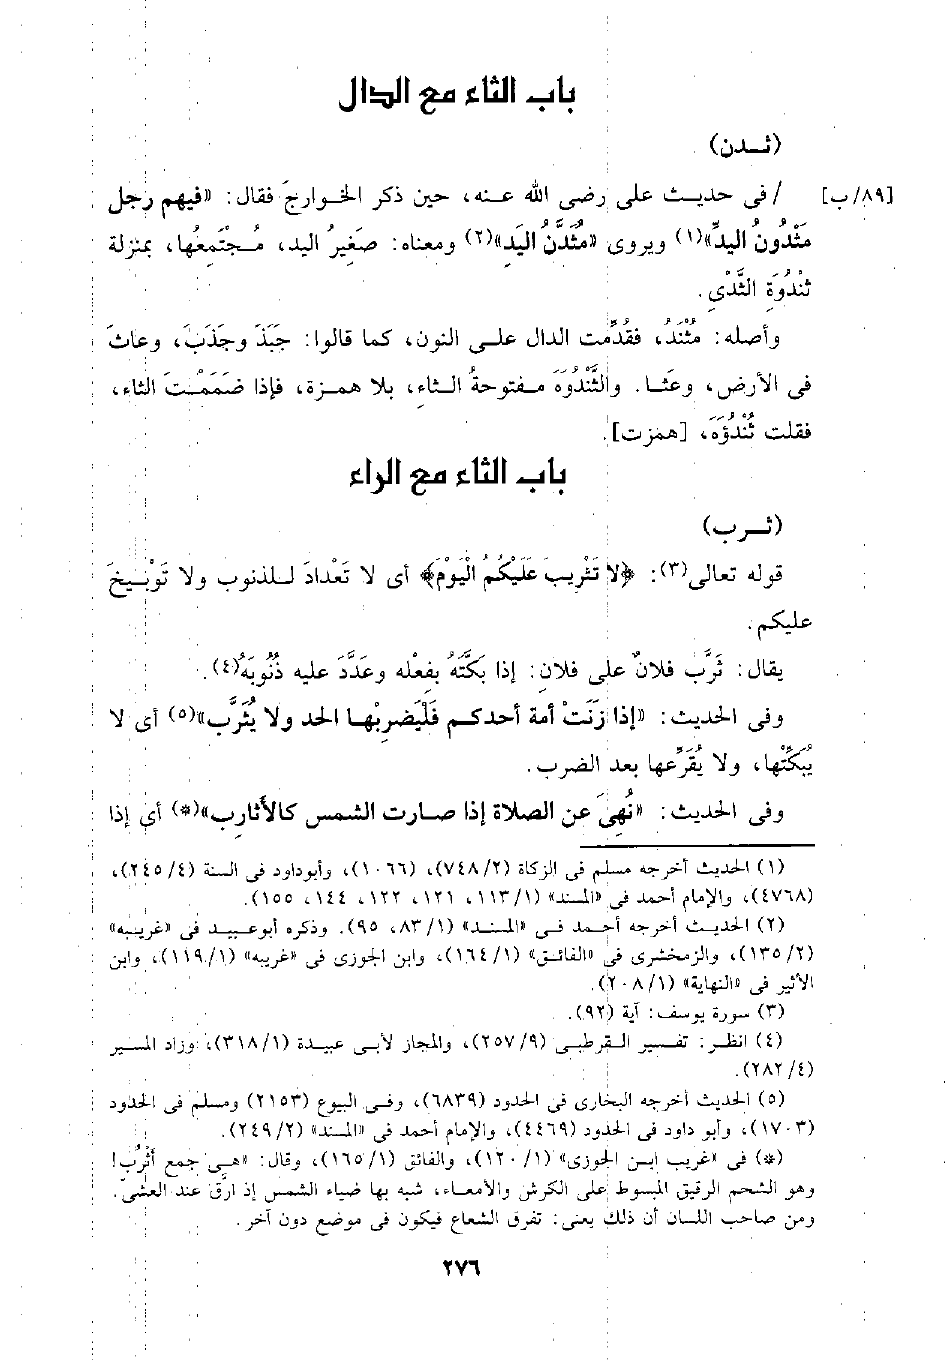 باب الثاء مع الدال
(ثـدن)
[٨٩/ب] / فى حديث على رضى الله عنه، حين ذكر الخوارجَ فقال: «فيهم رجل
مَثْدُونُ اليدِ»(١) ويروى «مُثَدَّنُ اليَدِ»(٢) ومعناه: صَغِيرُ اليد، مُجْتَمِعُها، بمنزلة
ثَنْدُوَة الثَّدْىِ.
وأصله: مُثَنَّد، فقُدِّمت الدال على النون، كما قالوا: جَبَذَ وجَذَبَ، وعاثَ
فى الأرض، وعَثَا. والثَّنْدُوَة مفتوحةُ الثاءِ، بلا همزة، فإذا ضَمَمْتَ الثاء،
فقلت ثُنْدُؤَة، [همزت].
باب الثاء مع الراء
(ثـرب)
قوله تعالى(٣): ﴿لا تَثْرِيبَ عَلَيْكُمُ الْيَوْمَ﴾ أى لا تَعْدادَ للذنوب ولا تَوْبِيخَ
عليكم.
يقال: ثَرَّب فلانٌ على فلان: إذا بَكَّتَهُ بِفعْله وعَدَّدَ عليه ذُنُوبَهُ(٤).
وفى الحديث: «إذا زَنَتْ أمة أحدكم فَلْيَضربْها الحد ولا يُثَرِّب»(٥) أى لا
يُبَكِّتْها، ولا يُقَرِّعها بعد الضرب.
وفى الحديث: «نُهِىَ عن الصلاة إذا صارت الشمس كالأثارِب»(*) أى إذا
(١) الحديث أخرجه مسلم فى الزكاة (٧٤٨/٢)، (١٠٦٦)، وأبوداود فى السنة (٢٤٥/٤)،
(٤٧٦٨)، والإمام أحمد فى «المسند» (١١٣/١، ١٢١، ١٢٢، ١٤٤، ١٥٥).
(٢) الحديث أخرجه أحمد فى «المسند» (٨٣/١، ٩٥). وذكره أبوعبيد فى «غريبه»
(١٣٥/٢)، والزمخشرى فى «الفائق» (١٦٤/١)، وابن الجوزى فى «غريبه» (١١٩/١)، وابن
الأثير فى «النهاية» (٢٠٨/١).
(٣) سورة يوسف: آية (٩٢).
(٤) انظر: تفسير القرطبى (٢٥٧/٩)، والمجاز لأبى عبيدة (٣١٨/١)، وزاد المسير
(٢٨٢/٤).
(٥) الحديث أخرجه البخارى فى الحدود (٦٨٣٩)، وفى البيوع (٢١٥٣) ومسلم فى الحدود
(١٧٠٣)، وأبو داود فى الحدود (٤٤٦٩)، والإمام أحمد فى «المسند» (٢٤٩/٢).
(*) فى «غريب ابن الجوزى» (١٢٠/١)، والفائق (١٦٥/١)، وقال: «هى جمع أثْرُب!
وهو الشحم الرقيق المبسوط على الكرش والأمعاء، شبه بها ضياء الشمس إذ ارَقَّ عند العشىّ.
ومن صاحب اللسان أن ذلك يعنى: تفرق الشعاع فيكون فى موضع دون آخر.
٢٧٦